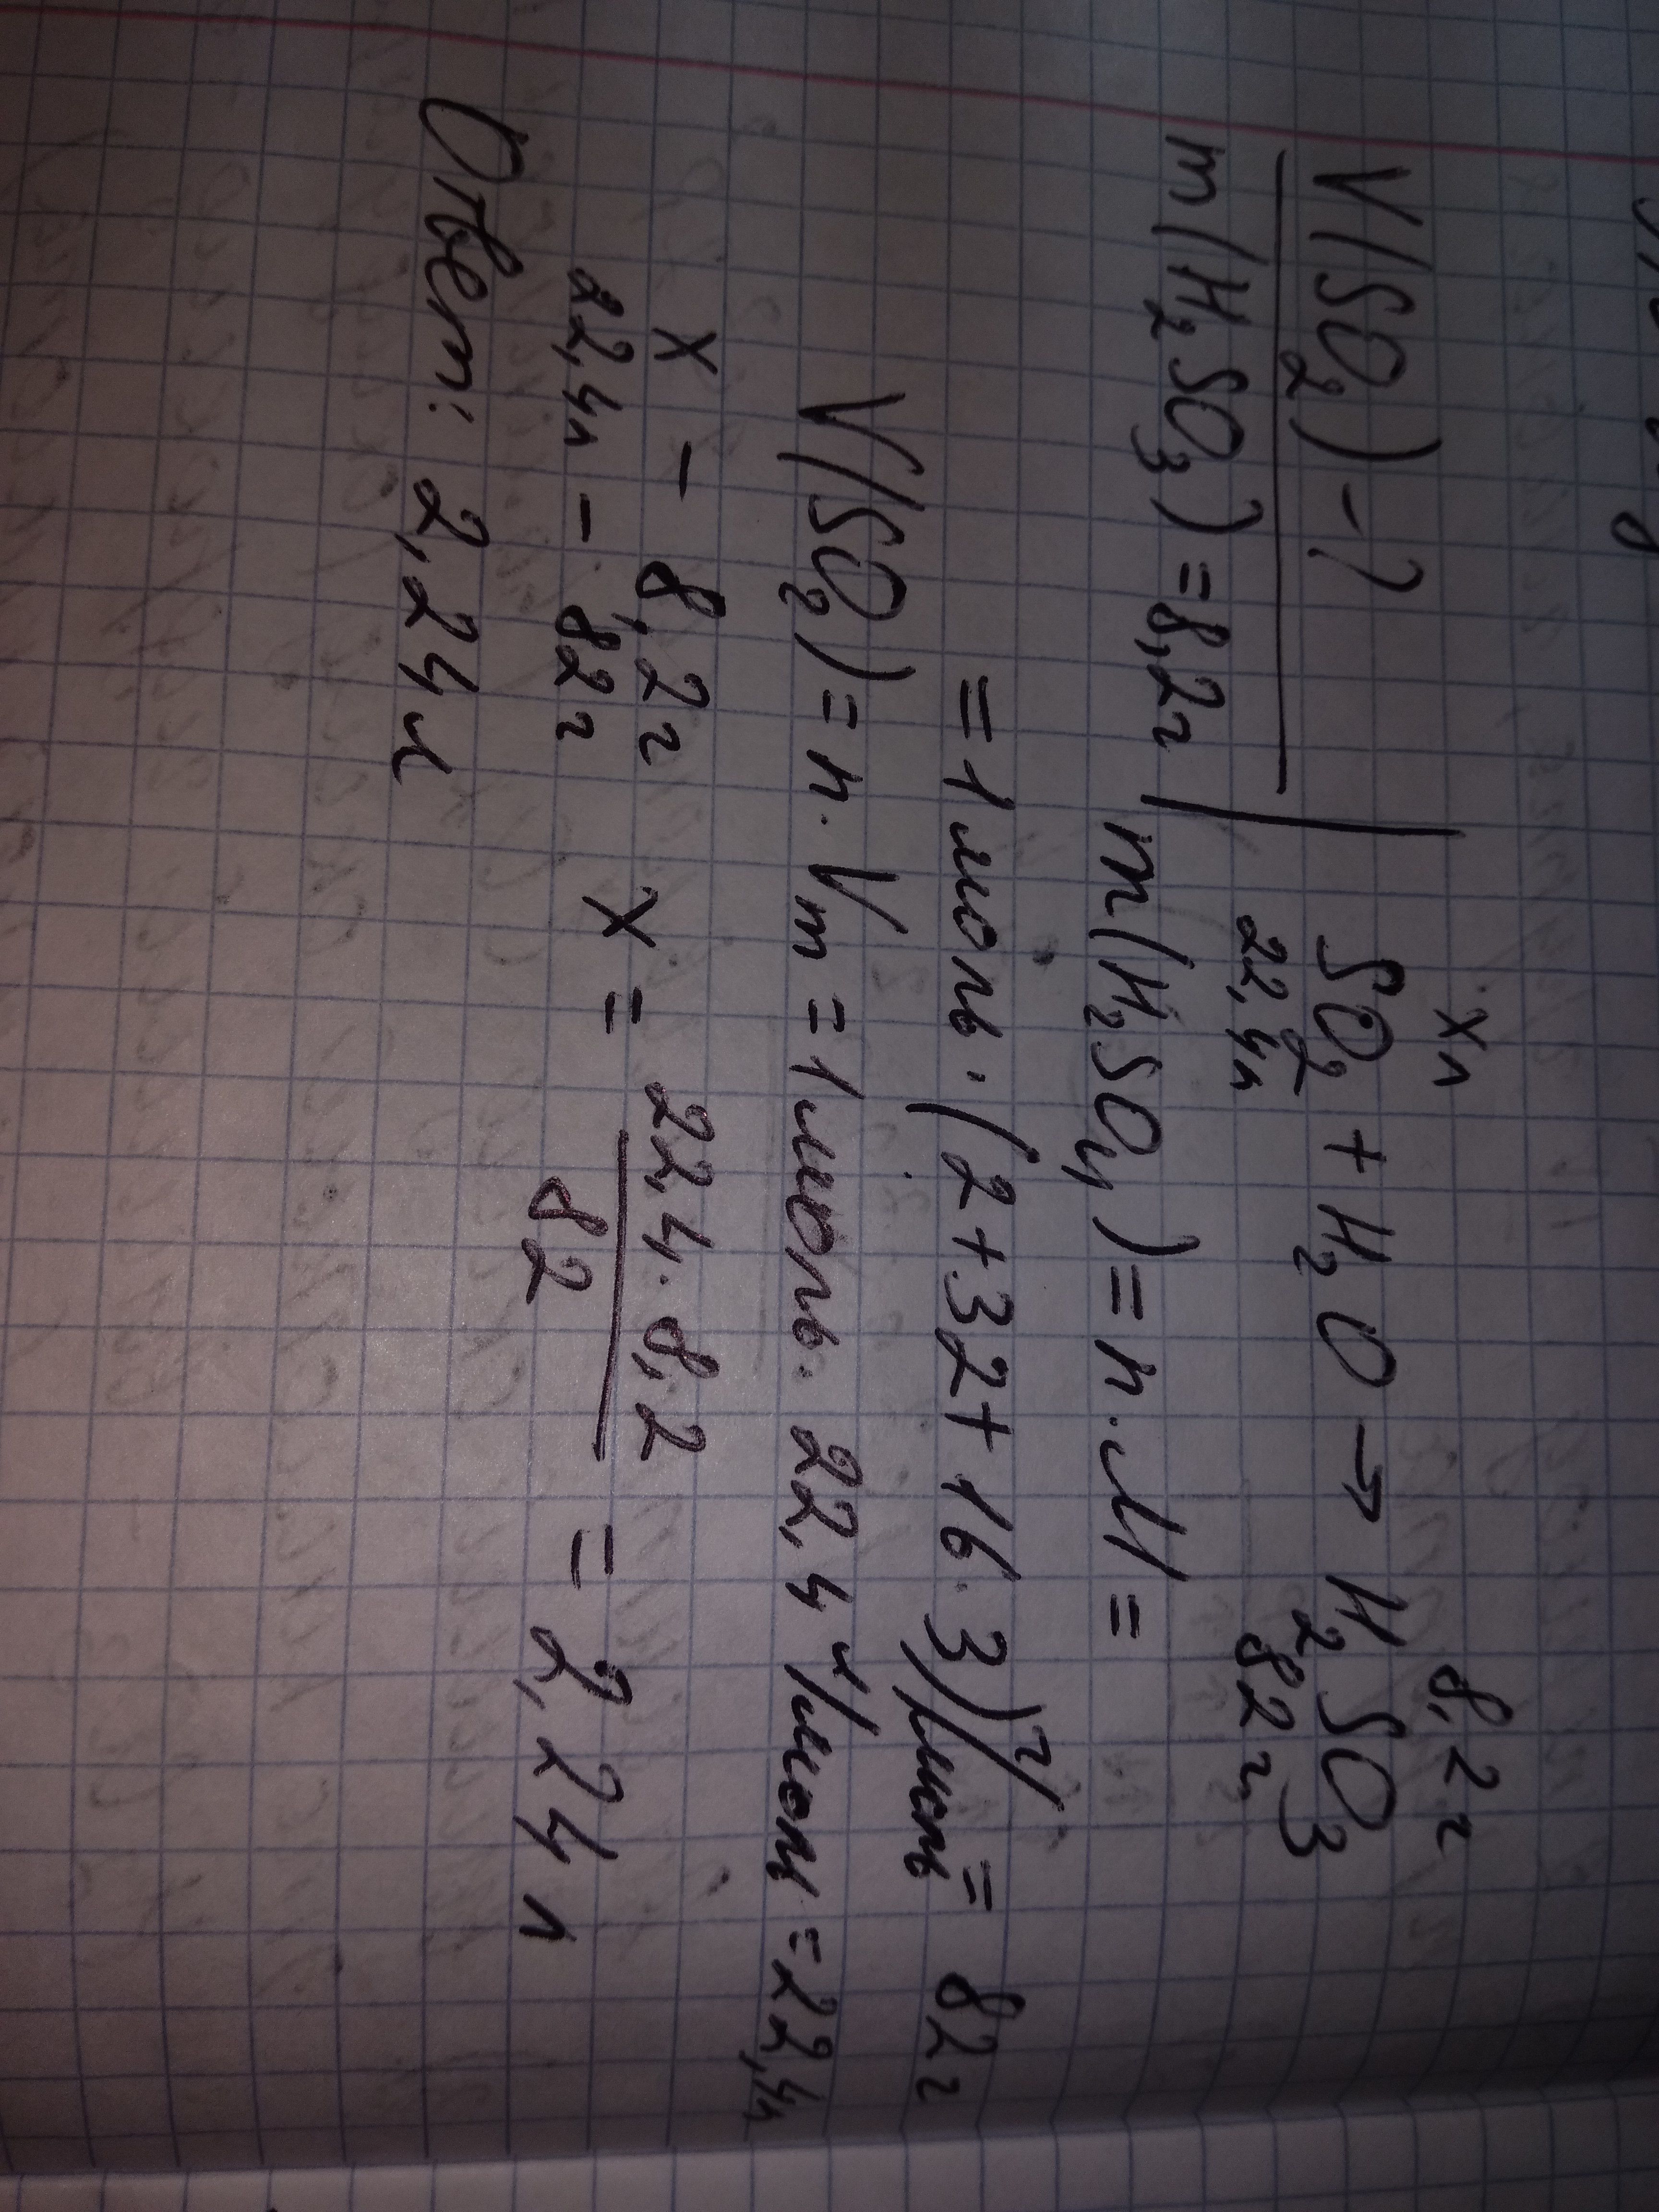 V(SO₂) - ?
m(H₂SO₃) = 8,2г
xл 8,2г
SO₂ + H₂O → H₂SO₃
22,4л 82г
m(H₂SO₄) = n · M =
= 1 моль · (2 + 32 + 16 · 3) г/моль = 82г
V(SO₂) = n · Vm = 1 моль · 22,4 л/моль = 22,4л
x - 8,2г
22,4л - 82г
x = 22,4 · 8,2 / 82 = 2,24 л
Ответ: 2,24л